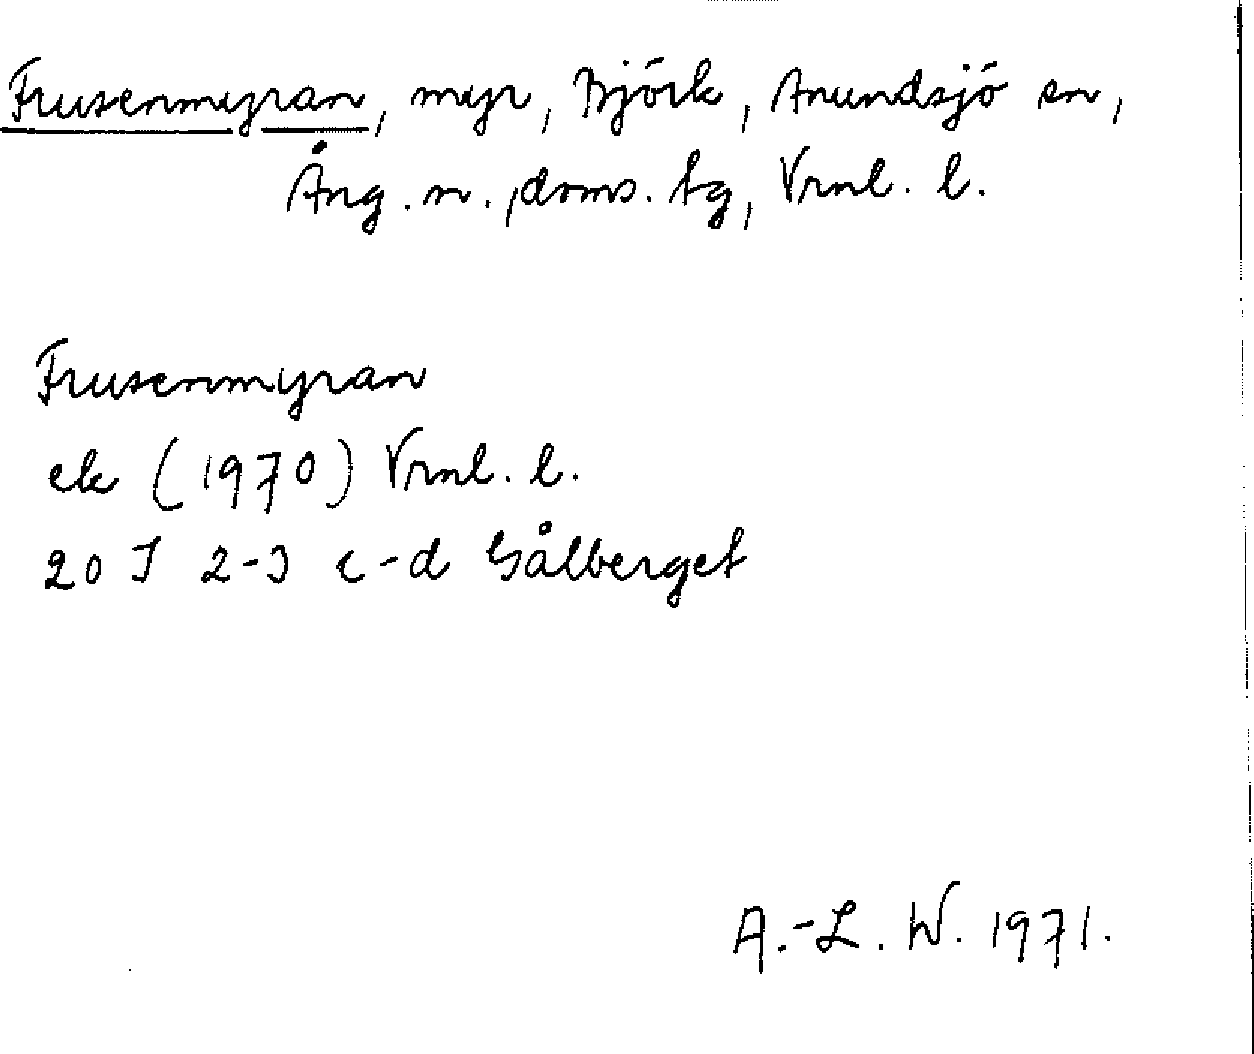 Frusenmyran, myr, Björk, Anundsjö sn,
Ång. n., doms. tg, Vrnl. l.
Frusenmyran
ek (1970) Vrnl. l.
20 I 2-3 c-d Gålberget
A.-L. W. 1971.